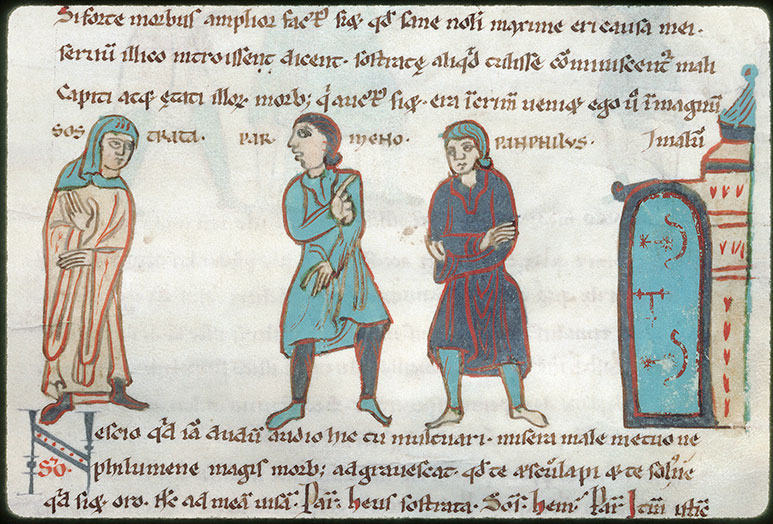 Si forte morbus amplior fact' siq; qđ sane noli maxime eri causa mei.
serinū illico introissent dicent. sostratę aliqđ tulisse cōminiscent' mali
Capiti atq; ętati illor' morb; q̇ auct' siq;. era iērim ueniq; ego ū i
SOS TRATA. PAR MENO. PANPHILVS.
Nescio qđ iā dudū audio hic tu multuari. misera male metuo ne
So. philumene magis morb; adgrauescat. qđ te æsculapi & te
qđ siq; oro. ad meā Par̄. heus sostrata. Sos. hem. Par̄. Itm̄ istic